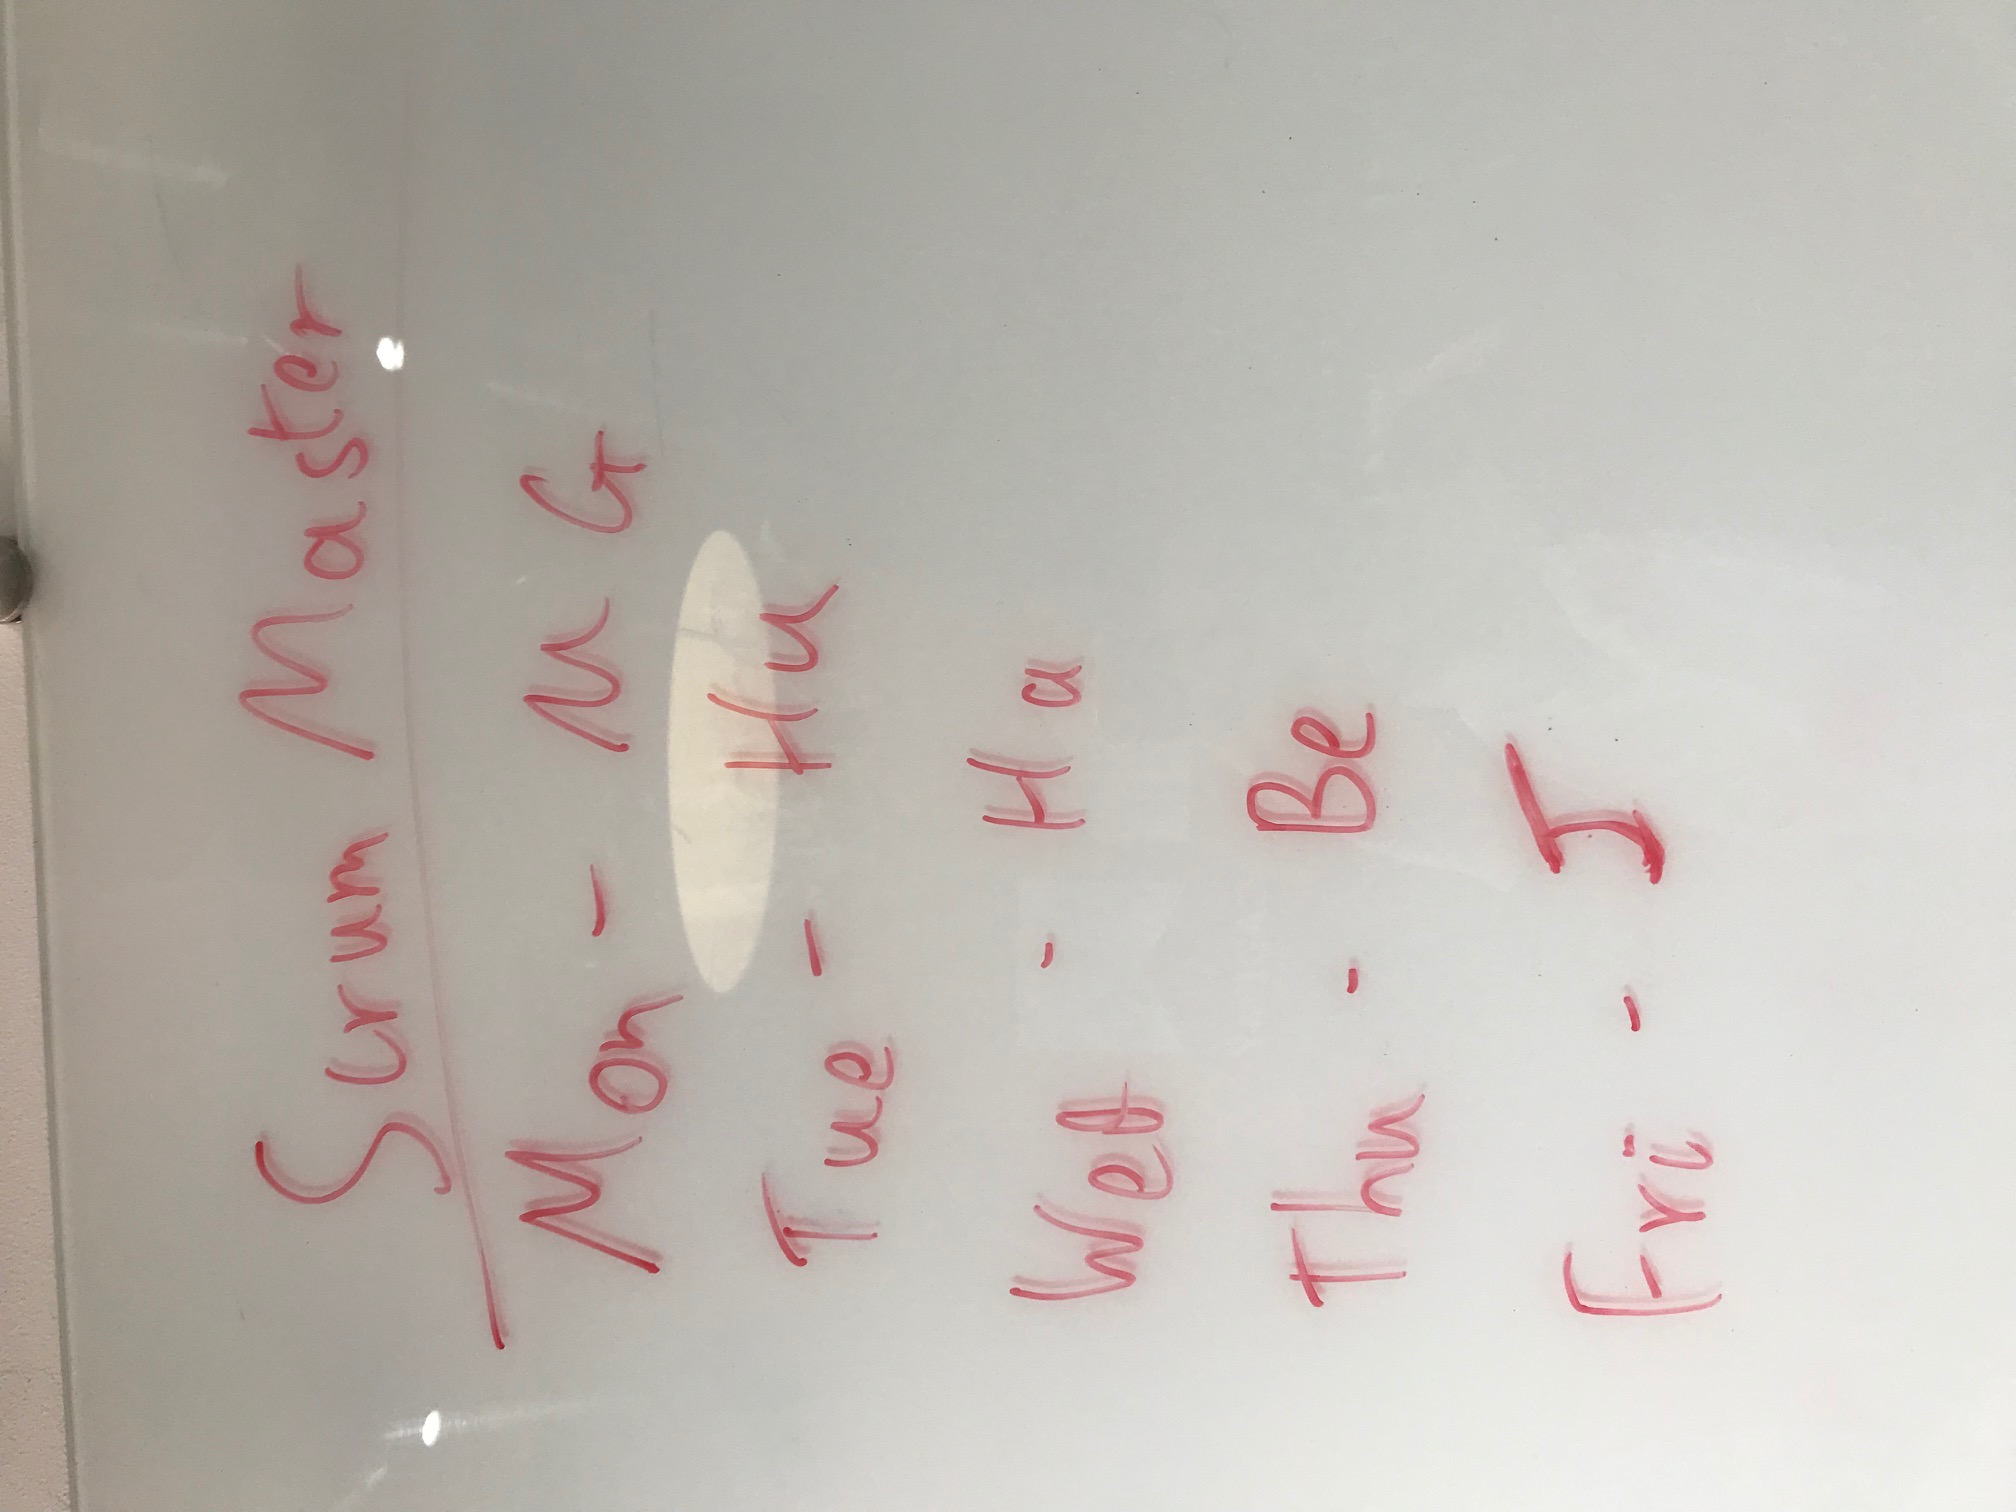 Scrum Master
Mon - M G
Tue - Hu
Wed - Ha
Thu - Be
Fri - J